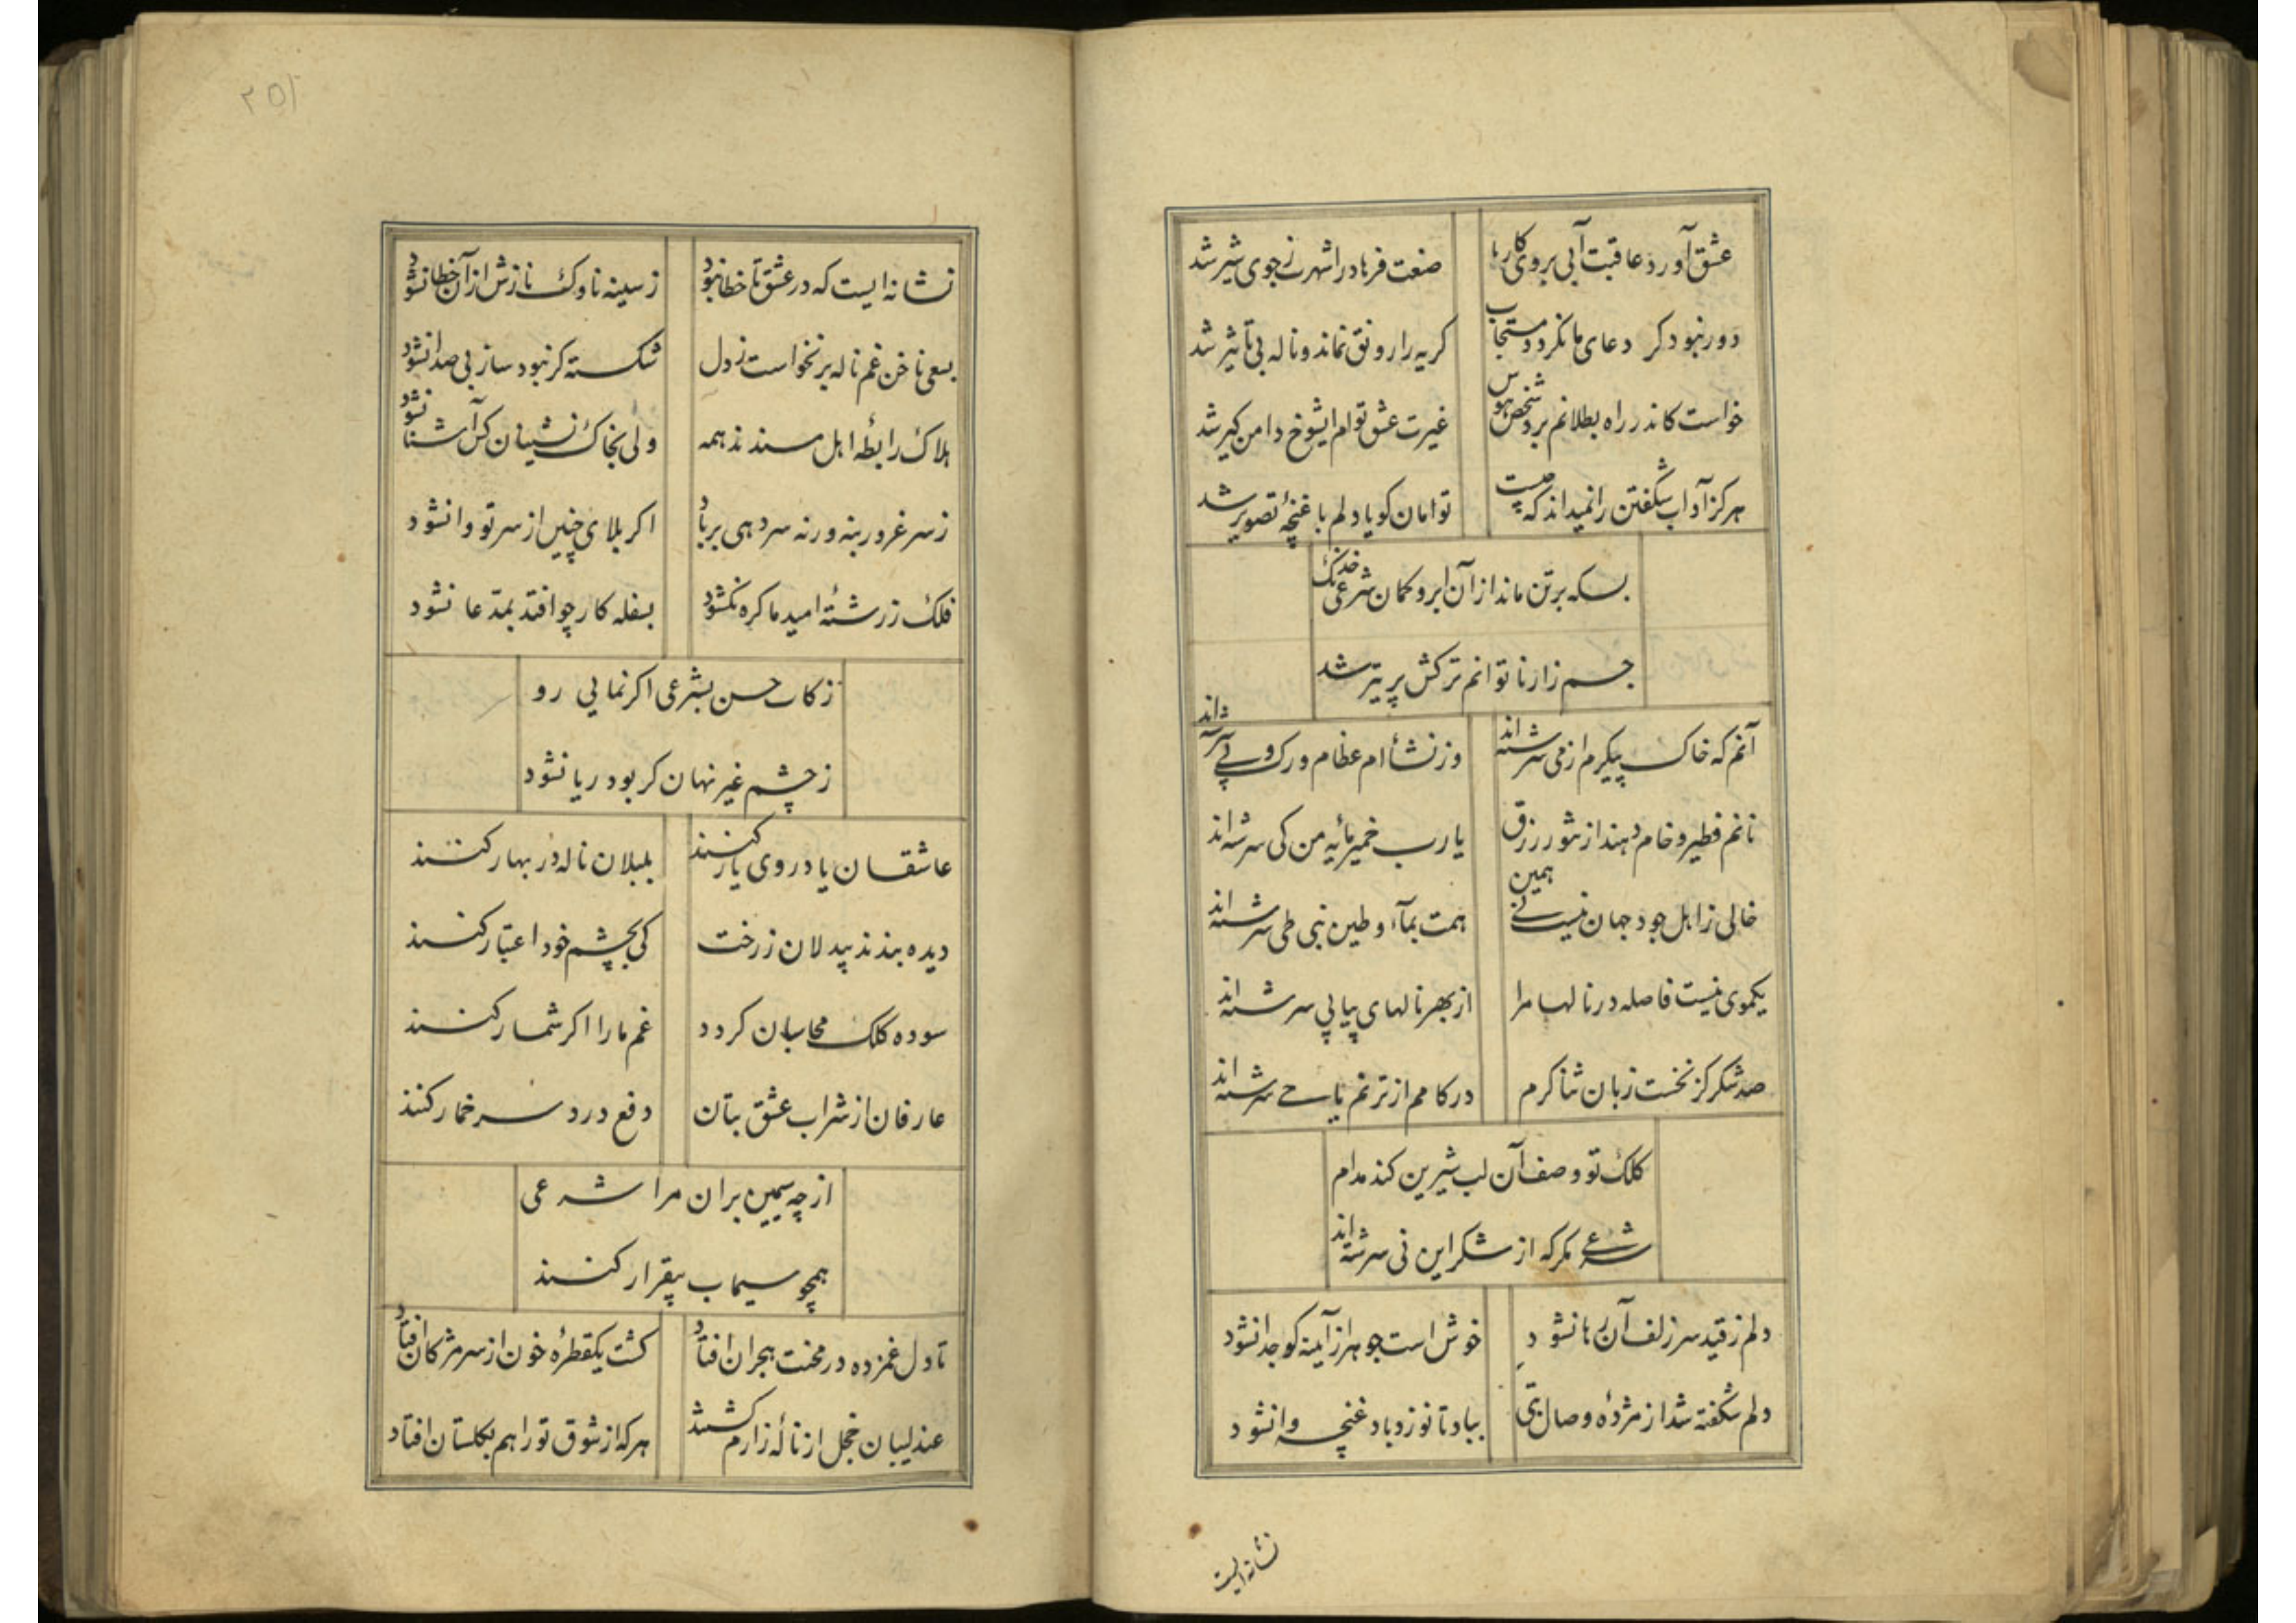 عشق آورد عاقبت آبی بروی کارها
صنعت فرهاد را شهرت ز جوی شیر شد
دور نبود کر دعای ما نکردد مستجاب
کریه را رونق نماند و ناله بی تأثیر شد
خواست کاندر راه بطلانم برد شخص هوس
غیرت عشق توام ایشوخ دامن کیر شد
هرکز آداب شکفتن را نمیداند که چیست
توامان کویا دلم با غنچهٔ تصویر شد
بسکه بر تن ماند از آن ابرو کمان شرعی خدنک
جسم زار ناتوانم ترکش پر تیر شد
آنم که خاک پیکرم از می سرشته‌اند
وز نشأ ام عظام و رک و پی سرشته‌اند
نانم فطیر و خام دهند از تنور رزق
یا رب خمیر مایهٔ من کی سرشته‌اند
خالی ز اهل جود جهان نیست نی همین
همت بمآء و طین نبی طی سرشته‌اند
یکموی نیست فاصله در نالها مرا
از بهر نالهای پیاپی سرشته‌اند
صد شکر کز نخست زبان ثنا کرم
در کامم از ترنم یا حی سرشته‌اند
کلک تو وصف آن لب شیرین کند مدام
شرعی مکر که از شکر این نی سرشته‌اند
دلم ز قید سر زلف آن رها نشود
خوش است جوهر از آینه کو جدا نشود
دلم شکفته شد از مژدهٔ وصال بتی
بباد تا نوزد باد غنچه وا نشود
نشانه ایست
٢٥١
نشانه ایست که در عشق تا خطا نبود
ز سینه ناوک نازش از آن خطا نشود
بسعی ناخن غم ناله برنخواست ز دل
شکسته کر نبود ساز بی صدا نشود
هلاک رابطهٔ اهل مسندند همه
ولی بخاک نشینان کس آشنا نشود
ز سر غرور بنه ورنه سر دهی بر باد
اکر بلای چنین از سر تو وا نشود
فلک ز رشتهٔ امید ما کره نکشود
بسفله کار چو افتد بمدّعا نشود
زکات حسن بشرعی اکر نمایی رو
ز چشم غیر نهان کر بود ریا نشود
عاشقان یاد روی یار کنند
بلبلان ناله در بهار کنند
دیده بندند بیدلان ز رخت
کی بچشم خود اعتبار کنند
سوده کلک محاسبان کردد
غم ما را اکر شمار کنند
عارفان از شراب عشق بتان
دفع درد سر خمار کنند
از چه سیمین بران مرا شرعی
همچو سیماب بیقرار کنند
تا دل غمزده در محنت هجران افتاد
کشت یکقطرهٔ خون از سر مژکان افتاد
عندلیبان خجل از نالهٔ زارم کشتند
هر که از شوق تو راهم بکلستان افتاد